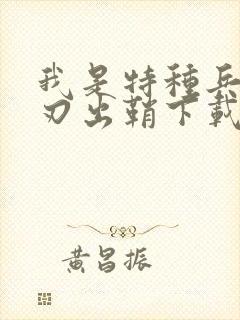 我是特種兵
刃出鞘下載
黃昌振